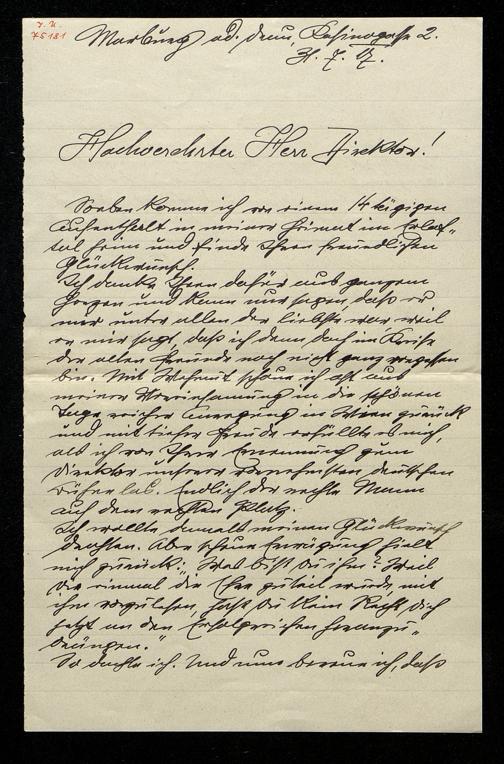 J. N.
75181
Marburg a/d. Drau, Kasinogasse 2.
31. 7. 17.
Hochverehrter Herr Direktor!
Soeben komme ich von einem 14 tägigen
Aufenthalt in meiner Heimat im Erlaf-
tal heim und finde Ihren freundlichen
Glückwunsch.
Ich danke Ihnen dafür aus ganzem
Herzen und kann nur sagen, daß er
mir unter allen der liebste war weil
er mir sagt, daß ich denn doch im Kreise
der alten Freunde noch nicht ganz vergessen
bin. Mit Wehmut schaue ich oft aus
meiner Vereinsamung in die schönen
Tage reicher Anregung in Wien zurück
und mit tiefer Freude erfüllte es mich,
als ich von Ihrer Ernennung zum
Direktor unserer vornehmsten deutschen
Bühne las. Endlich der rechte Mann
auf dem rechten Platz.
Ich wollte damals meinen Glückwunsch
drahten. Aber scheue Erwägung hielt
mich zurück: „Was bist Du ihm? Weil
Dir einmal die Ehre zuteil wurde, mit
ihm vorzulesen, hast Du kein Recht, Dich
jetzt an den Erfolgreichen heranzu-
drängen."
So dachte ich. Und nun bereue ich, daß